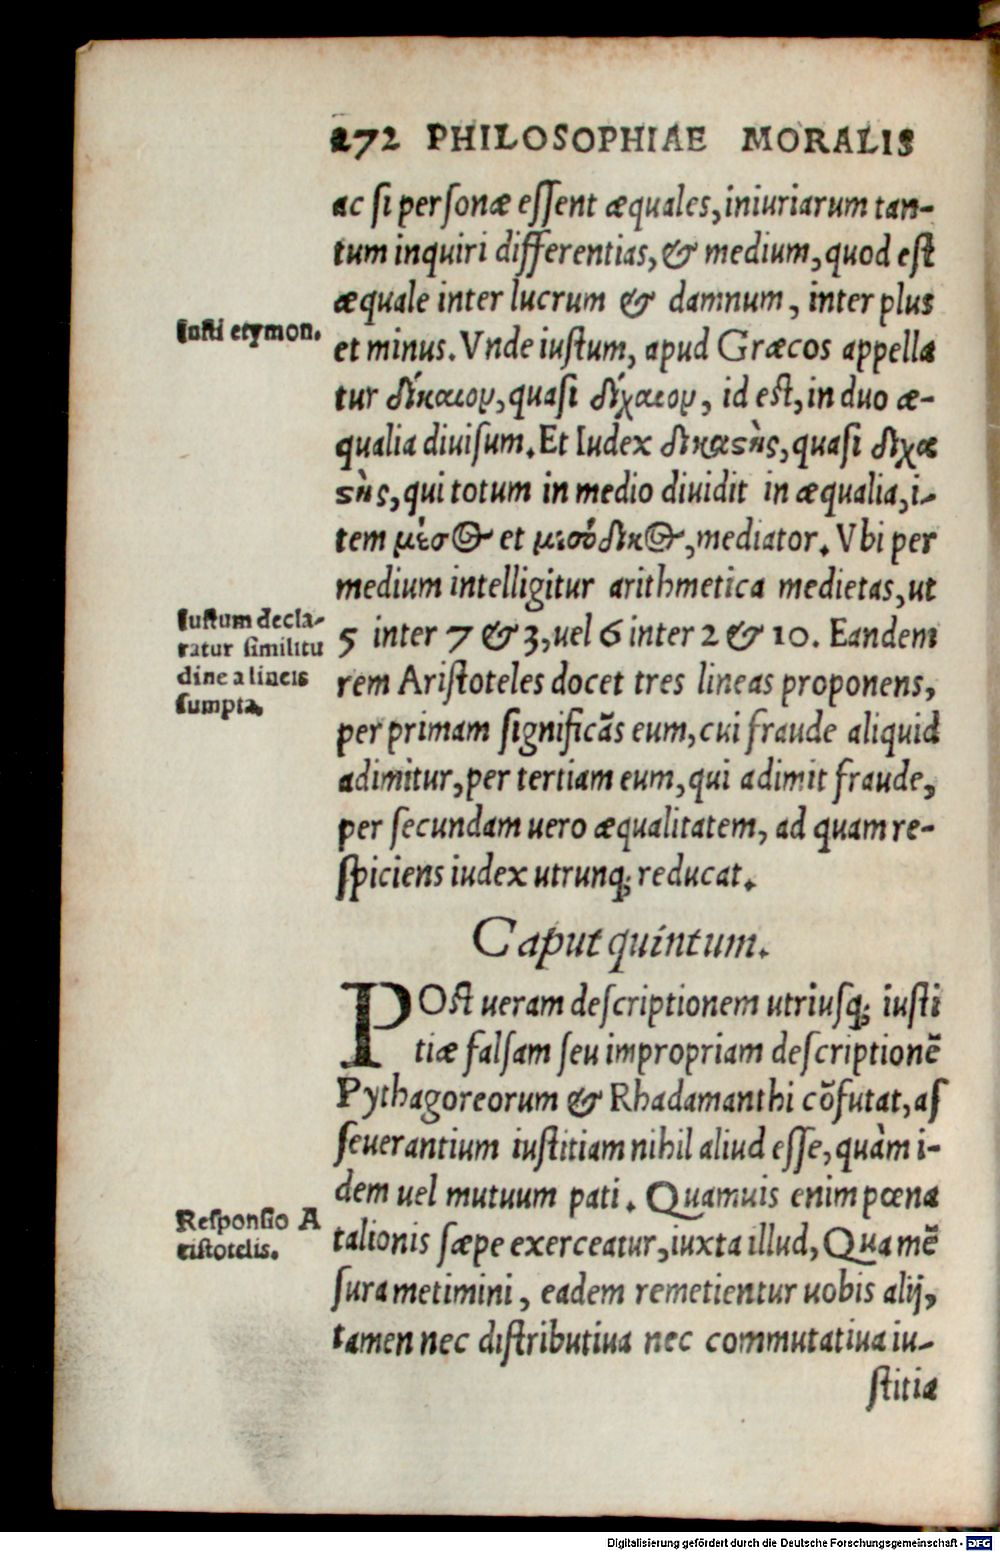 272 PHILOSOPHIAE MORALIS
ac si personæ essent æquales, iniuriarum tan-
tum inquiri differentias, & medium, quod est
æquale inter lucrum & damnum, inter plus
Iusti etymon.
et minus. Vnde iustum, apud Græcos appella
tur δίκαιομ, quasi δίχαιομ, id est, in duo æ-
qualia diuisum. Et Iudex δικαςὴς, quasi διχα
ςὴς, qui totum in medio diuidit in æqualia, i-
tem μέσ⊙ et μεσόδικ⊙, mediator. Vbi per
medium intelligitur arithmetica medietas, ut
Iustum decla-
ratur similitu
dine a lineis
sumpta.
5 inter 7 & 3, uel 6 inter 2 & 10. Eandem
rem Aristoteles docet tres lineas proponens,
per primam significãs eum, cui fraude aliquid
adimitur, per tertiam eum, qui adimit fraude,
per secundam uero æqualitatem, ad quam re-
spiciens iudex utrunq; reducat.
Caput quintum.
POst ueram descriptionem utriusq; iusti
tiæ falsam seu impropriam descriptionẽ
Pythagoreorum & Rhadamanthi cõfutat, as
seuerantium iustitiam nihil aliud esse, quàm i-
dem uel mutuum pati. Quamuis enim pœna
Responsio A
ristotelis.
talionis sæpe exerceatur, iuxta illud, Qua mẽ
sura metimini, eadem remetientur uobis alij,
tamen nec distributiua nec commutatiua iu-
stitia
Digitalisierung gefördert durch die Deutsche Forschungsgemeinschaft - DFG